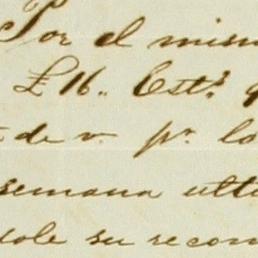 Por el mism
£ 16.. Cest.s q
de v. pr. lo
semana ulti
dole su recon